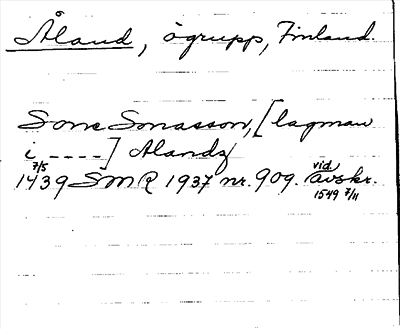 Åland, ögrupp, Finland.
Sone Sonasson, [lagman
i ----] Alandz
7/5
1439 SMR 1937 nr. 909. vid. avskr.
1549 7/11